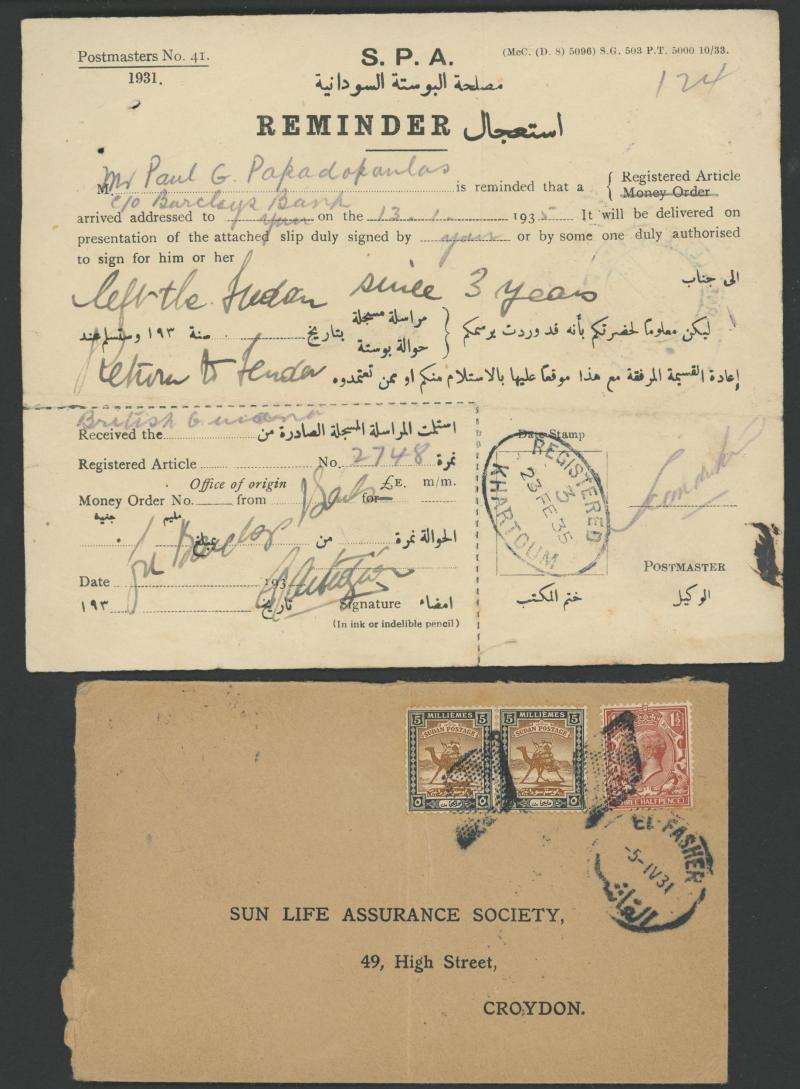 Postmasters No. 41.
1931.
S. P. A.
(McC. (D. 8) 5096) S.G. 503 P.T. 5000 10/33.
مصلحة البوستة السودانية
124
REMINDER استعجال
M Mr Paul G. Papadopoulos is reminded that a { Registered Article
Money Order
c/o Barclays Bank
arrived addressed to you on the 13.1. 1935 It will be delivered on
presentation of the attached slip duly signed by you or by some one duly authorised
to sign for him or her
الى جناب
left the Sudan since 3 years
ليكن معلوماً لحضرتكم بأنه قد وردت برسمكم { مراسلة مسجلة
حوالة بوستة } بتاريخ سنة ١٩٣ وستسلم عند
إعادة القسيمة المرفقة مع هذا موقعاً عليها بالاستلام منكم او ممن تعتمدوه
Return to Sender
British Guiana
Received the استلمت المراسلة المسجلة الصادرة من
Registered Article No. 2748 نمرة
Office of origin £E. m/m.
Money Order No. from for
جنيه مليم
الحوالة نمرة من بمبلغ
for Barclays Bank
Date 193
١٩٣ تاريخ Signature امضاء
(In ink or indelible pencil)
Date Stamp
REGISTERED
3
23 FE 35
KHARTOUM
ختم المكتب
POSTMASTER
الوكيل
5 MILLIEMES 5
SUDAN POSTAGE
5 MILLIEMES 5
SUDAN POSTAGE
1½
THREE HALFPENCE
EL-FASHER
-5-IV31
الفاشر
SUN LIFE ASSURANCE SOCIETY,
49, High Street,
CROYDON.